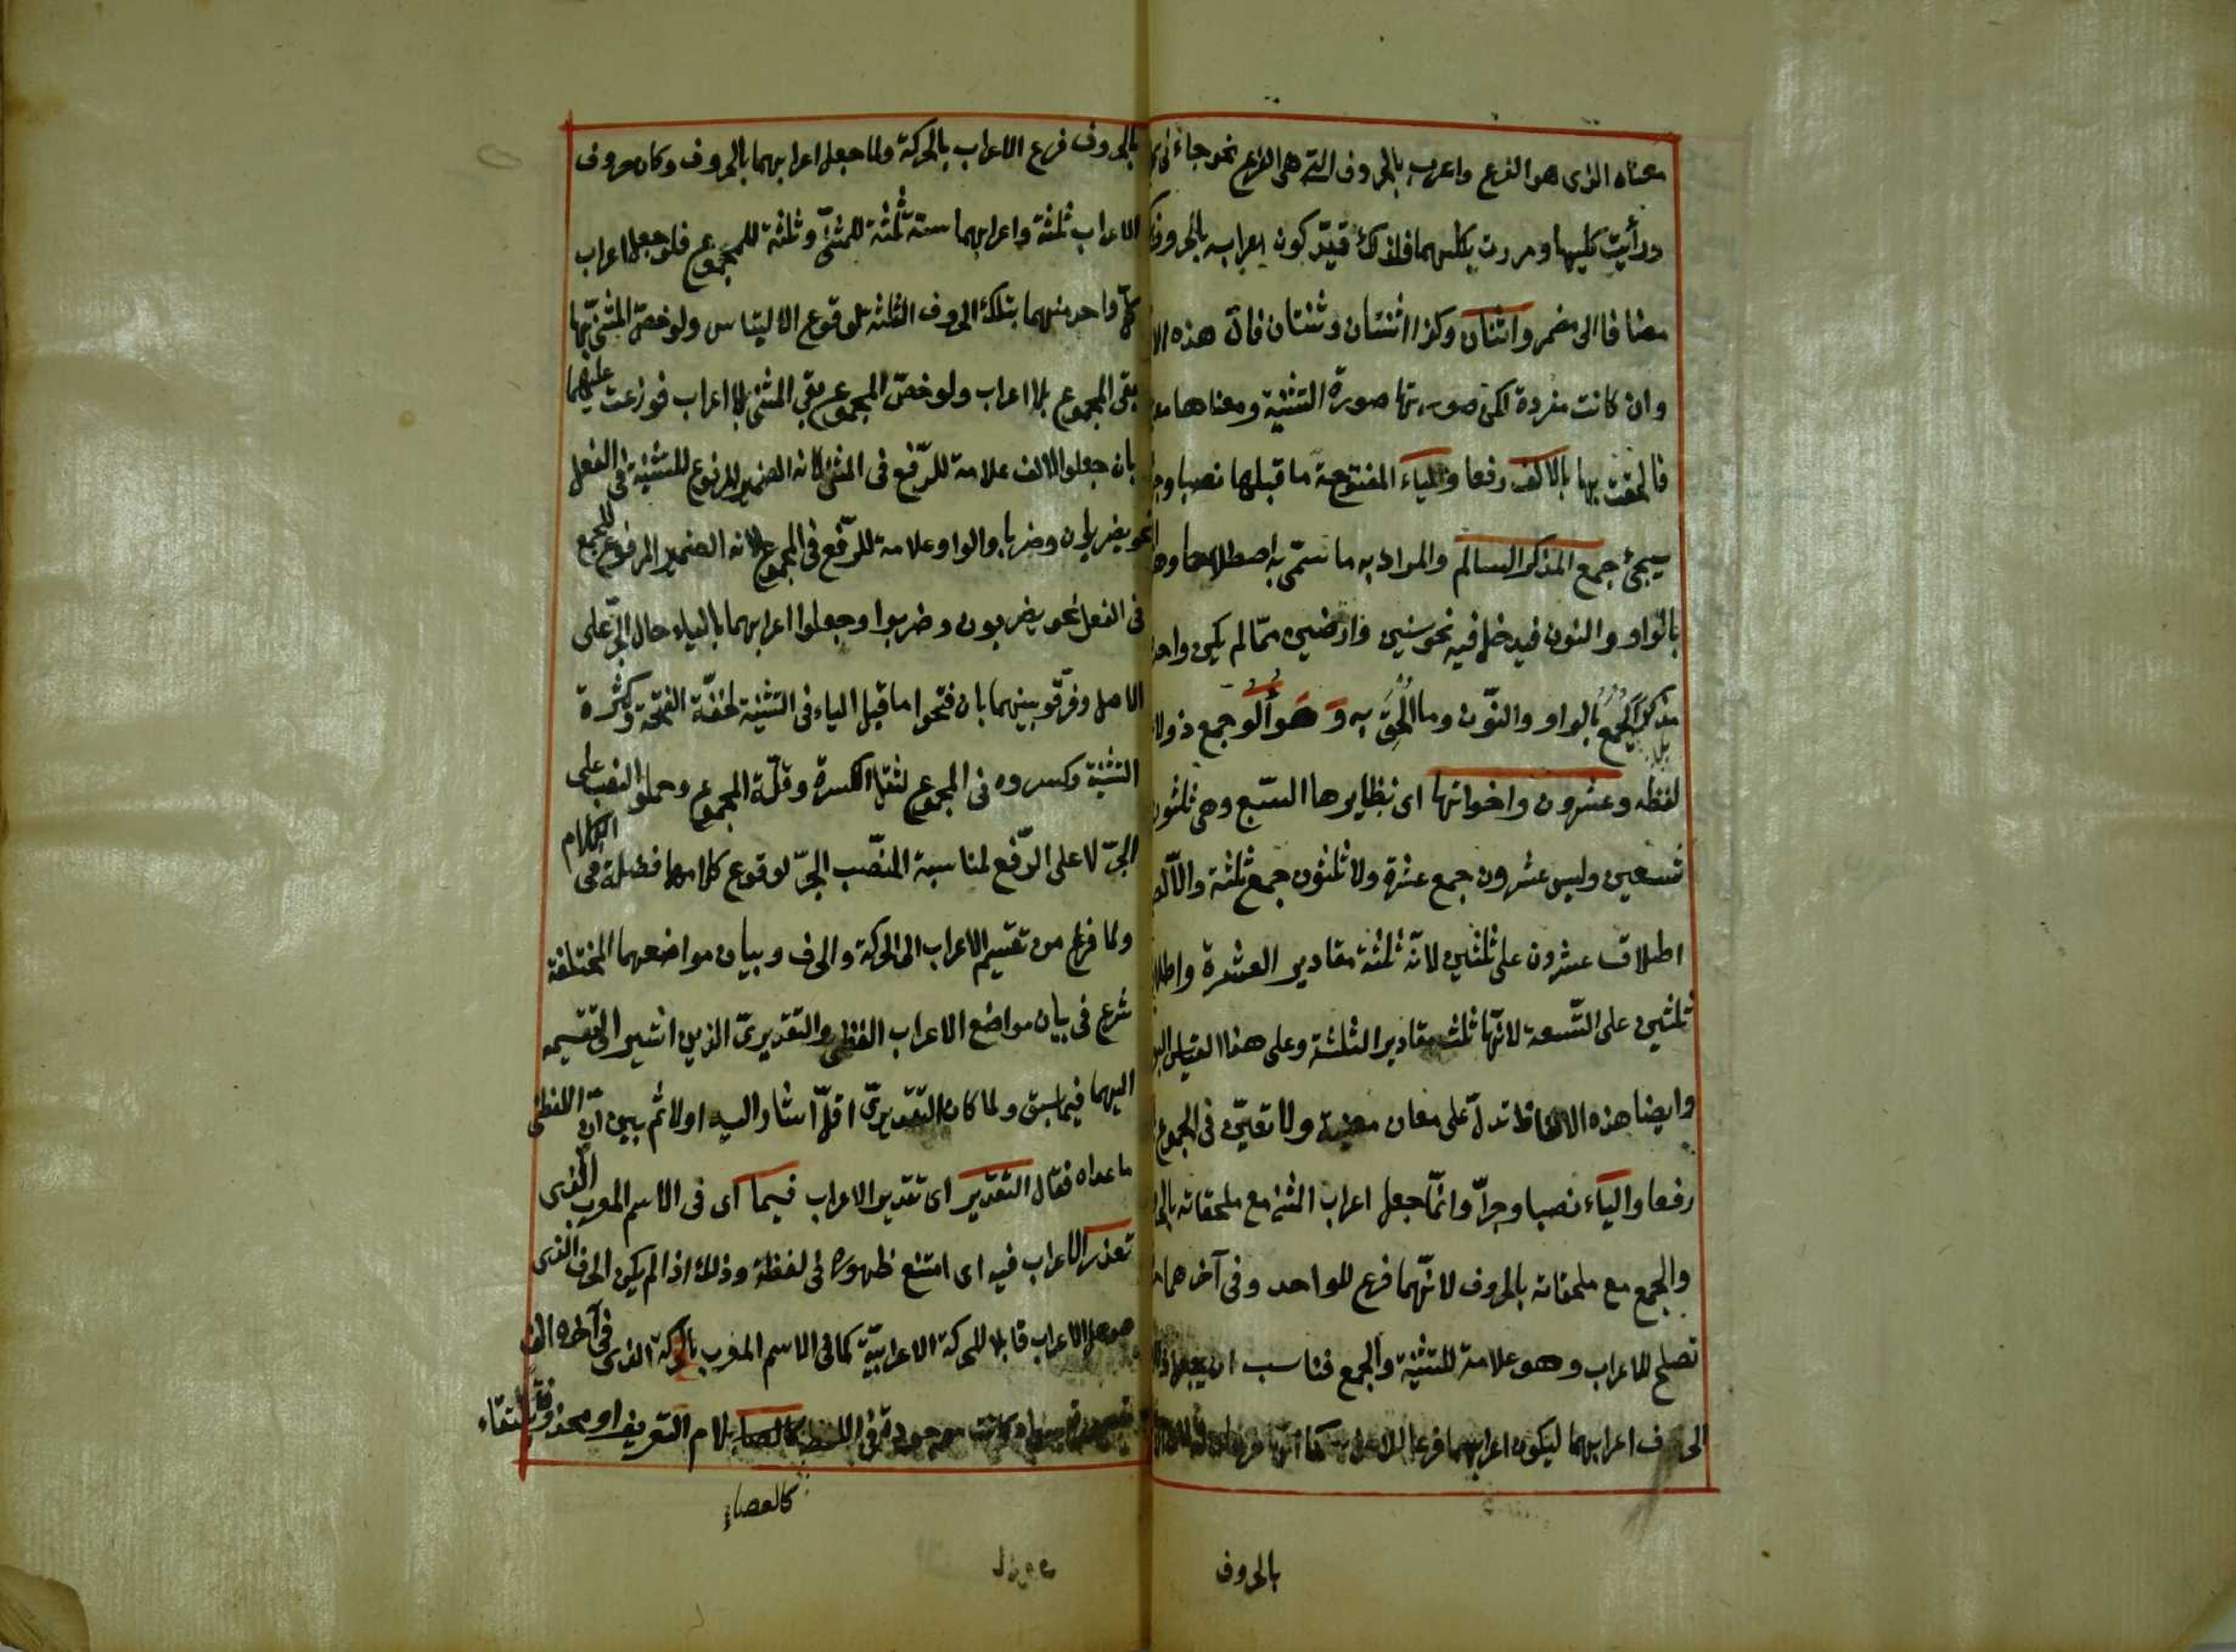 معناه الذى هو الفرع واعرب بالحروف التى هى الفرع نحو جاءنى
ورأيت كليهما ومررت بكليهما فلذلك قيّد كون اعرابه بالحروف
مضافا الى مضمر واثنان وكذا اثنتان وثنتان فانّ هذه
وان كانت مفردة لكن صورتها صورة التثنية ومعناها
فالحقت بها بالالف رفعا والياء المفتوحة ما قبلها نصبا
سيجئ جمع المذكر السالم والمراد به ما سمّى به اصطلاحا
بالواو والنون فيدخل فيه نحو سنين وارضين ممّا لم يكن
مذكرا يجمع بالواو والنّون وما الحق به وهو ألو جمع ذو لا
لفظه وعشرون واخواتها اى نظايرها السّبع وهى ثلثون
تسعين وليس عشرون جمع عشرة ولا ثلثون جمع ثلثة والّا
اطلاق عشرون على ثلثين لانّه ثلثة مقادير العشرة
ثلثين على التّسعة لانّها ثلث مقادير الثلثة وعلى هذا القياس
وايضا هذه الالفاظ تدلّ على معان معينة ولا تعيّن فى الجموع
رفعا والياء نصبا وجرّا وانّما جعل اعراب المثنى مع ملحقاته
والجمع مع ملحقاته بالحروف لانّهما فرع للواحد وفى آخرهما
تصلح للاعراب وهو علامة للتثنية والجمع فناسب ان يجعل
الحروف اعرابهما ليكون اعرابهما فرعا للاعراب كما انّ
بالحروف
بالحروف فرع الاعراب بالحركة ولما جعل اعرابهما بالحروف وكان حروف
الاعراب ثلثة واعرابهما ستة ثلثة للمثنّى وثلثة للمجموع فلو جعل اعراب
كلّ واحد منهما بتلك الحروف الثلثة لوقوع الالتباس ولو خصّ المثنى بها
بقى المجموع بلا اعراب ولو خصّ المجموع بقى المثنى بلا اعراب فوزعت عليهما
بان جعلوا الالف علامة للرّفع فى المثنى لانه الضمير المرفوع للتثنية فى الفعل
نحو يضربان وضربا والواو علامة للرّفع فى المجموع لانه الضمير المرفوع للجمع
فى الفعل نحو يضربون وضربوا وجعلوا اعرابهما بالياء حال الجرّ على
الاصل وفرّقو بينهما بان فتحوا ما قبل الياء فى التثنية لخفّة الفتحة وكثرة
التثنية وكسروه فى المجموع لثقل الكسرة وقلّة المجموع وحملوا النصب على
الجرّ لا على الرّفع لمناسبة النّصب الجرّ لوقوع كلّ منهما فضلة فى الكلام
ولما فرغ من تقسيم الاعراب الى الحركة والحرف وبيان مواضعهما المختلفة
شرع فى بيان مواضع الاعراب اللفظى والتقديرىّ الذين اشير الى تقسيمه
اليهما فيما سبق ولما كان التقديرىّ اقلّ اشار اليه اولا ثم بيّن انّ اللفظى
ما عداه فقال التقدير اى تقدير الاعراب فيما اى فى الاسم المعرب الذى
تعذر الاعراب فيه اى امتنع ظهوره فى لفظه وذلك اذا لم يكن الحرف الذى
هو محل الاعراب قابلا للحركة الاعرابيّة كما فى الاسم المعرب بالحركة الذى فى آخره الف
مقصورة سواء كانت موجودة فى اللفظ كالعصا بلام التعريف او محذوفة بالتقاء
كالعصا